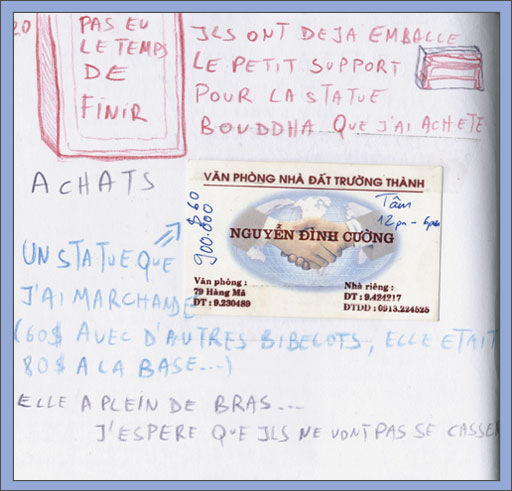 20
PAS EU
LE TEMPS
DE
FINIR
JLS ONT DEJA EMBALLE
LE PETIT SUPPORT
POUR LA STATUE
BOUDDHA QUE J'AI ACHETE
ACHATS
VĂN PHÒNG NHÀ ĐẤT TRƯỜNG THÀNH
$60
900.000
Tâm
12pm - 6pm
NGUYỄN ĐÌNH CƯỜNG
Văn phòng :
79 Hàng Mã
ĐT : 9.230489
Nhà riêng :
ĐT : 9.424217
ĐTDD : 0913.224525
UN STATUE QUE
J'AI MARCHANDE
(60$ AVEC D'AUTRES BIBELOTS, ELLE ETAIT
80$ A LA BASE...)
ELLE A PLEIN DE BRAS...
J'ESPERE QUE JLS NE VONT PAS SE CASSER